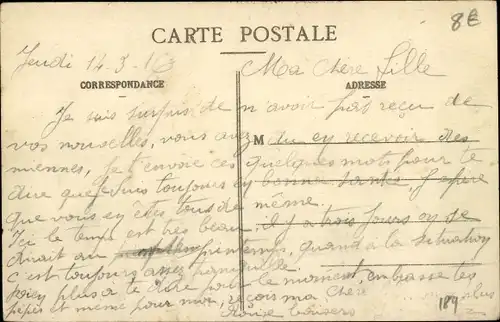 8 €
CARTE POSTALE
Jeudi 12-3-1
Ma chere fille
CORRESPONDANCE
ADRESSE
Je suis surpris de n'avoir pas reçu de
vos nouvelles, vous avez M du ey recevoir des
miennes, Je t'envoie ces quelques mots pour te
dire que je suis toujours ey bonne santé, J'espère
que vous ey êtes tous de même.
Ici le temps est très beau, il y a trois jours on se
dirait au printemps, quand à la situation
c'est toujours assez
rien plus à te dire pour le moment, embrasse les
et même pour moi, reçois ma chere
189
plus
baisers